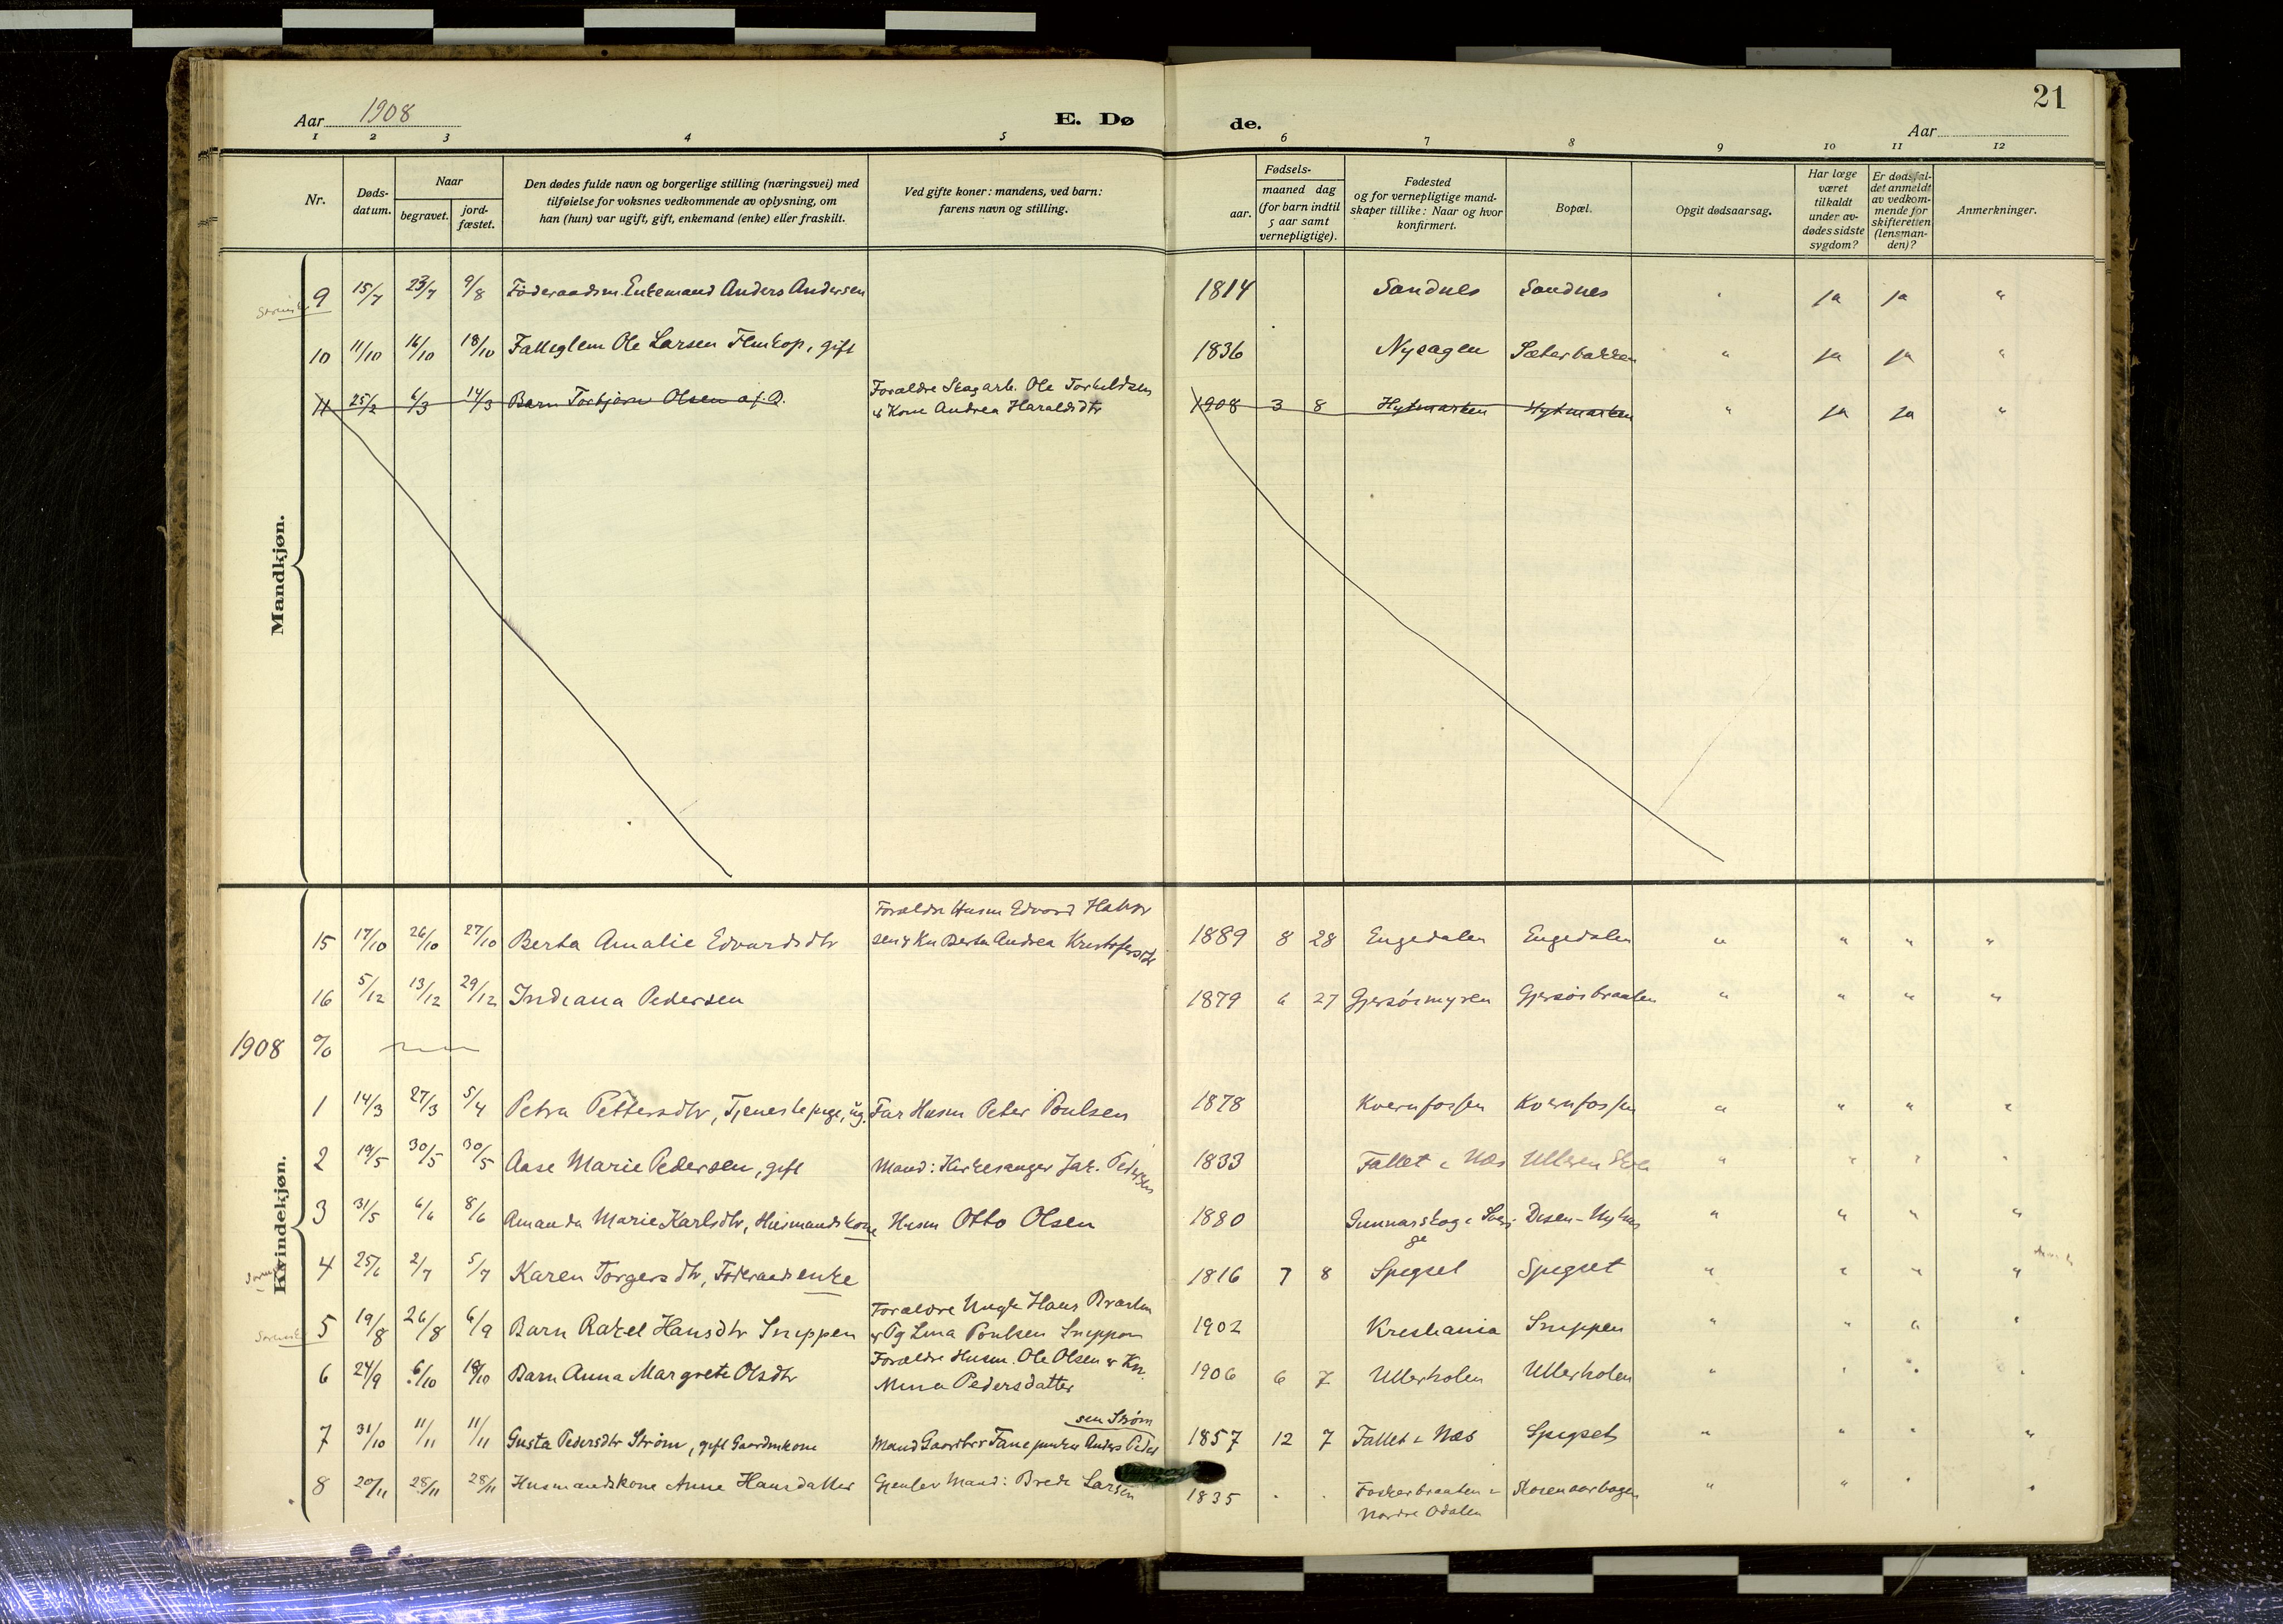 21
Aar 1908
E. Dø de.
Aar
1 2 3 4 5 6 7 8 9 10 11 12
Nr.
Døds-
datum.
Naar
begravet.
jord-
fæstet.
Den dødes fulde navn og borgerlige stilling (næringsvei) med
tilføielse for voksnes vedkommende av oplysning, om
han (hun) var ugift, gift, enkemand (enke) eller fraskilt.
Ved gifte koner: mandens, ved barn:
farens navn og stilling.
Fødsels-
aar.
maaned dag
(for barn indtil
5 aar samt
vernepligtige).
Fødested
og for vernepligtige mand-
skaper tillike: Naar og hvor
konfirmert.
Bopæl.
Opgit dødsaarsag.
Har læge
været
tilkaldt
under av-
dødes sidste
sygdom?
Er dødsfal-
det anmeldt
av vedkom-
mende for
skifteretten
(lensman-
den)?
Anmerkninger.
Mandkjøn.
9 15/7 23/7 9/8 Føderaadsm. Enkemand Anders Andersen 1814 Sandnes Sandnes " ja ja "
10 11/10 16/10 18/10 Fattiglem Ole Larsen, gift 1836 Sæterbakken " ja ja "
Forældre Skogarb. Ole Torkildsen
11 25/2 6/3 14/3 Barn Torbjørn Olsen af Q. & Kone Andrea Haraldsdtr 1908 3 8 Hytmarken Hytmarken " ja ja "
Kvindekjøn.
Forældre Husm Edvard Halvor
15 17/10 26/10 27/10 Berta Amalie Edvardsdtr sen & Kn Berta Andrea Kristofersdtr 1889 8 28 Engedalen Engedalen " " " "
16 5/12 13/12 29/12 Indiana Pedersen 1879 6 27 Gjersøsmyren Gjersøsbraaten " " " "
1908 %
1 14/3 27/3 5/4 Petra Pettersdtr, Tjenestepige, ug. Far Husm Peter Poulsen 1878 Kvernfossen Kvernfossen " " " "
2 19/5 30/5 30/5 Aase Marie Pedersen, gift Mand: Kirkesanger Jak. Pedersen 1833 Fallet i Næs Ulleren Skole " " " "
3 31/5 6/6 8/6 Amanda Marie Karlsdtr, Husmandskone Husm Otto Olsen 1880 Gunnarskog i Sveri- Disen-Nyhus " " " "
ge
4 25/6 2/7 5/7 Karen Torgersdtr, Føderaadsenke 1816 7 8 Spigset Spigset " " " "
Forældre Ungk Hans Braaten
5 19/8 26/8 6/9 Barn Rakel Hansdtr Snippen & Pg Lina Poulsen Snippen 1902 Kristiania Snippen " " " "
Forældre Husm. Ole Olsen & Kn.
6 24/9 6/10 18/10 Barn Anna Margrete Olsdtr Mina Pedersdatter 1906 6 7 Ullerholen Ullerholen " " " "
sen Strøm
7 31/10 11/11 11/11 Gusta Pedersdtr Strøm, gift Gaardmkone Mand Gaardbr Anders Peder 1857 12 7 Fallet i Næs Spigset " " " "
8 20/11 28/11 28/11 Husmandskone Anne Hansdatter Gjenlev Mand: Brede Larsen 1835 Foskerbraaten i " " " "
Nordre Odalen